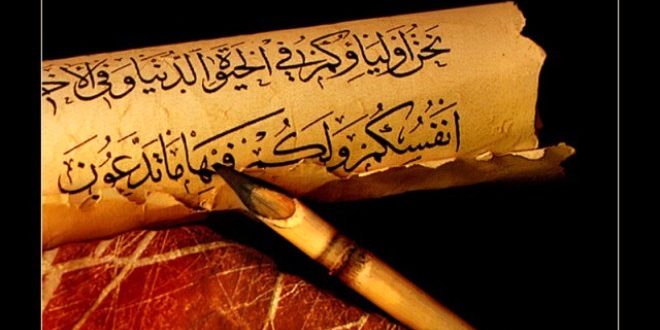 نَحْنُ أَوْلِيَاؤُكُمْ فِي الْحَيَوةِ الدُّنْيَا وَفِي الْآخِـ
أَنْفُسُكُمْ وَلَكُمْ فِيهَا مَا تَدَّعُونَ